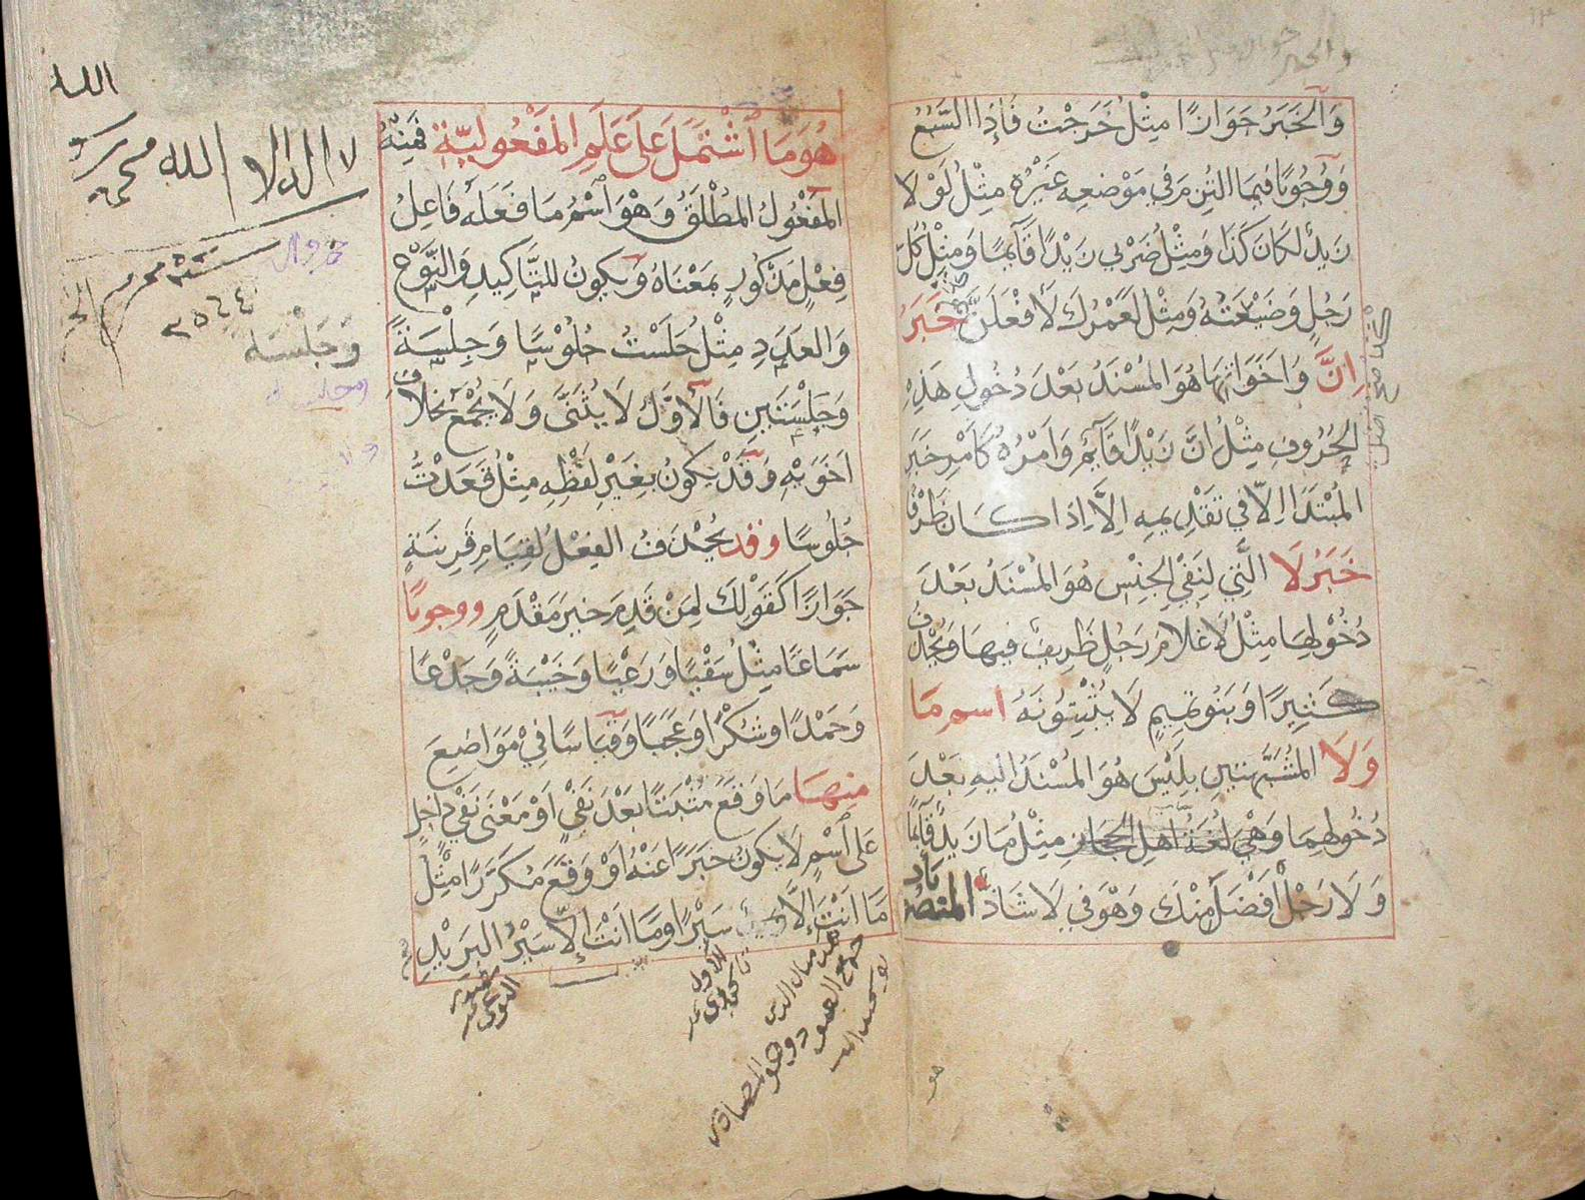 وَالخَبَرُ جَوَازًا مِثْلُ خَرَجْتُ فَإِذَا السَّبُعُ
وَوُجُوبًا فِيمَا التُزِمَ فِي مَوْضِعِهِ غَيْرُهُ مِثْلُ لَوْلَا
زَيدٌ لكَانَ كَذَا وَمِثْلُ ضَرْبِي زَيْدًا قَآيِمًا وَمِثْلُ كُلُّ
رَجُلٍ وَضَيْعَتُهُ وَمِثْل لَعَمْرُكَ لَأَفْعَلَنَّ خَبَرُ
اِنَّ وَاَخَوَاتِهَا هُوَ المُسْنَدُ بَعْدَ دُخُولِ هَذِهِ
الحُرُوفِ مِثْلُ اِنَّ زَيْدًا قَآيِمٌ وَاَمْرُهُ كَاَمْرِ خَبَرِ
المُبْتَدَا اِلّا فِي تَقْدِيمِهِ اِلَّا اِذَا كَانَ ظَرْفًا
خَبَرُ لَا الَّتِي لِنَفْيِ الجِنْسِ هُوَ المُسْنَدُ بَعْدَ
دُخُوْلِهَا مِثْلُ لَاغُلَامَ رَجُلٍ ظَرِيفٌ فِيهَا وَيُحْذَفُ
كَثِيرًا وَبَنُو تَمِيمٍ لَا يُثْبِتُونَهُ اسم مَا
وَلَا المُشَبَّهَتَينِ بِلَيْسَ هُوَ المُسْنَدُ اليهِ بَعْدَ
دُخُولِهِمَا وَهْيَ لُغَةُ اَهلِ الحِجَازِ مِثْلُ مَا زَيدٌ قَآيِمًا
وَلَا رَجُلٌ أَفْضَلَ مِنْكَ وَهْوَ فِي لَا شَاذٌّ المنصوبات
هُوَ مَا اشْتَمَلَ عَلَى عَلَمِ المَفْعُولِيَّةِ فَمِنْهُ
المَفْعُولُ المُطْلَقُ وَهْوَ اسْمُ مَا فَعَلَهُ فَاعِلُ
فِعْلٍ مَذْكُورٍ بِمَعْنَاهُ وَيَكونُ للتَّاكِيدِ وَالنَّوْعِ
وَالعَدَدِ مِثْلُ جَلَسْتُ جُلُوْسًا وَجِلْسَةً
وَجَلْسَتَينِ فَالأَوَّلُ لَا يُثَنَّى وَلَا يُجْمَعُ بخلاف
اَخَوَيْهِ وَقَدْ يَكونُ بِغَيْرِ لَفْظِهِ مِثْلُ قَعَدْتُّ
جُلُوسًا وقد يُحْذَفُ الفِعْلُ لِقِيَامِ قَرِينَةٍ
جَوَازًا كَقَوْلِكَ لِمَنْ قَدِمَ خَيرَ مَقْدَمٍ ووجوبًا
سَمَاعًا مِثْلُ سَقْيًا وَرَعْيًا وَخَيْبَةً وَجَدْعًا
وَحَمْدًا وشُكْرًا وَعَجَبًا وَقِيَاسًا فِيْ مَوَاضِيعَ
مِنهَا مَا وَقَعَ مُثْبَتًا بَعْدَ نَفْيٍ اَوْ مَعْنَى نَفْيٍ دَاخِلٍ
عَلَى اسْمٍ لَا يَكونُ خَبَرًا عَنْهُ اَوْ وَقَعَ مُكَرَّرًا مِثْلُ
مَا اَنْتَ إِلَّا سَيْرًا وَمَا اَنْتَ اِلّا سَيْرُ البَرِيْدِ
الله
لا اله الا الله محمد رسو
وَجَلْسَه
٢٥٦٤